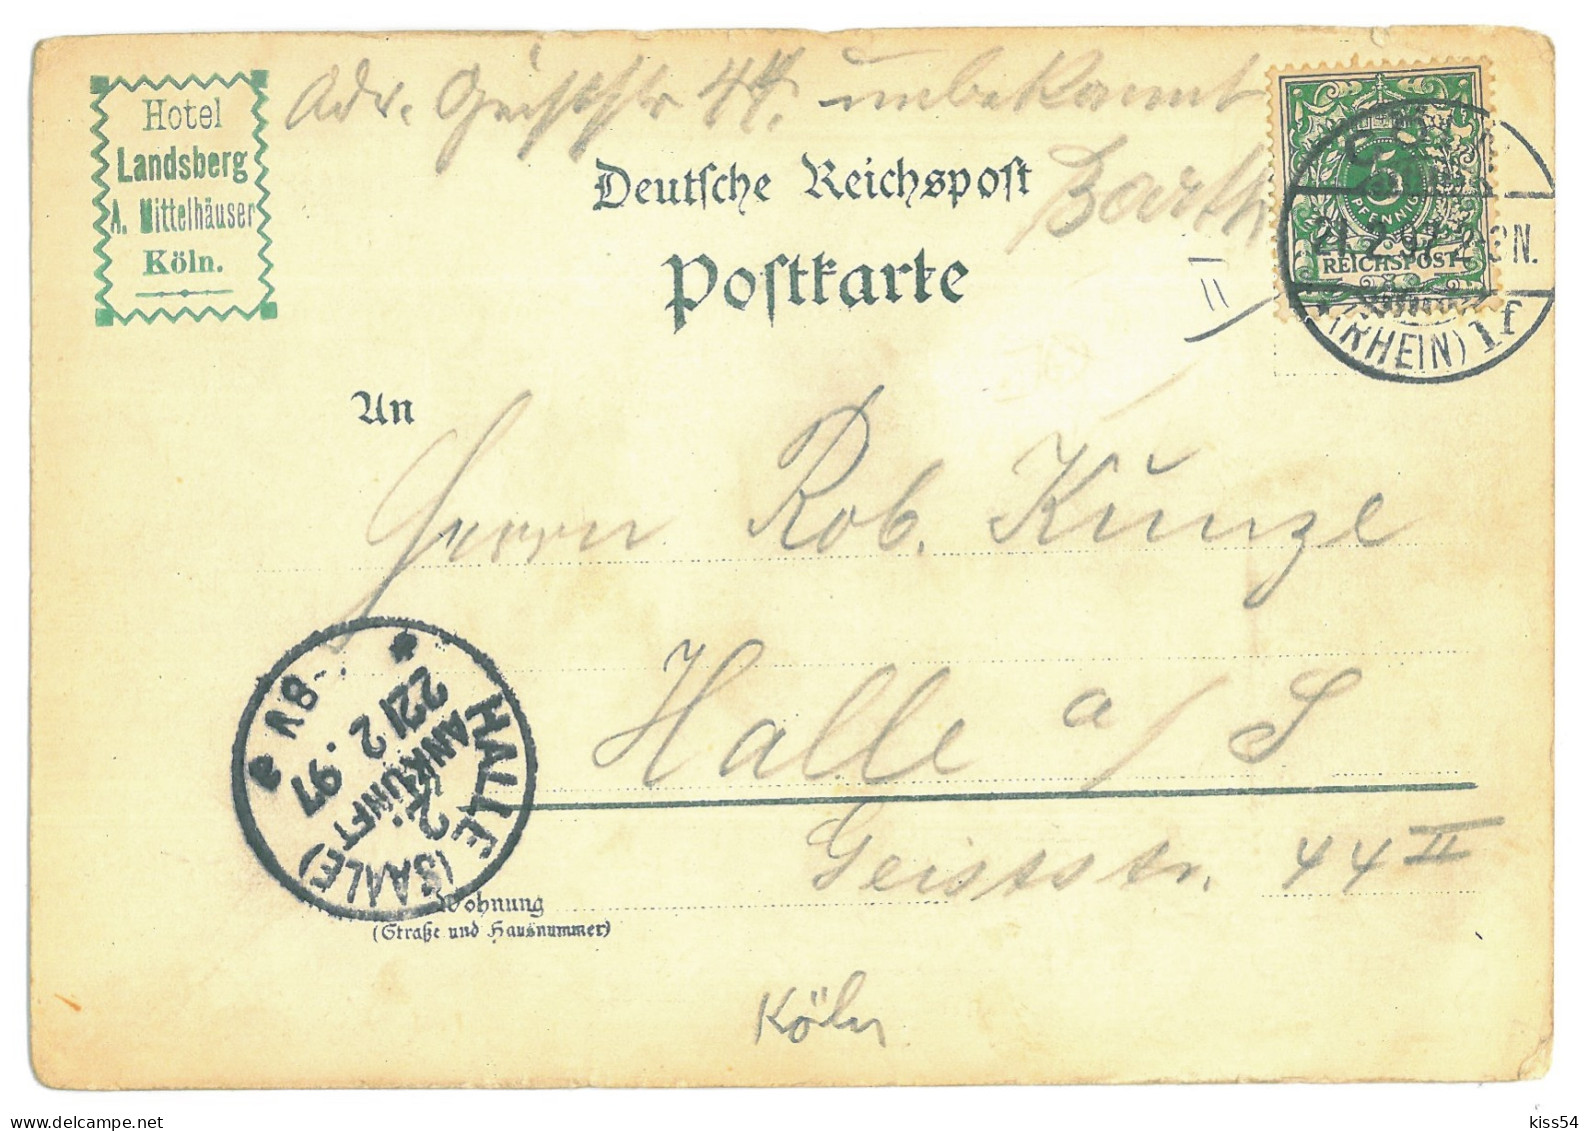 Adr. Geiststr 44. unbekannt
Barth
Hotel
Landsberg
A. Mittelhäuser
Köln.
Deutsche Reichspost
Postkarte
5
PFENNIG
REICHSPOST
21.2.97 2-3N.
(RHEIN) 1f
II
An
Herrn Rob. Kunze
Halle a/S
Geiststr. 44 II
HALLE (SAALE)
ANKUNFT
22/2.97
8V
2
a
Wohnung
(Straße und Hausnummer)
Köln
delcampe.net
kiss54